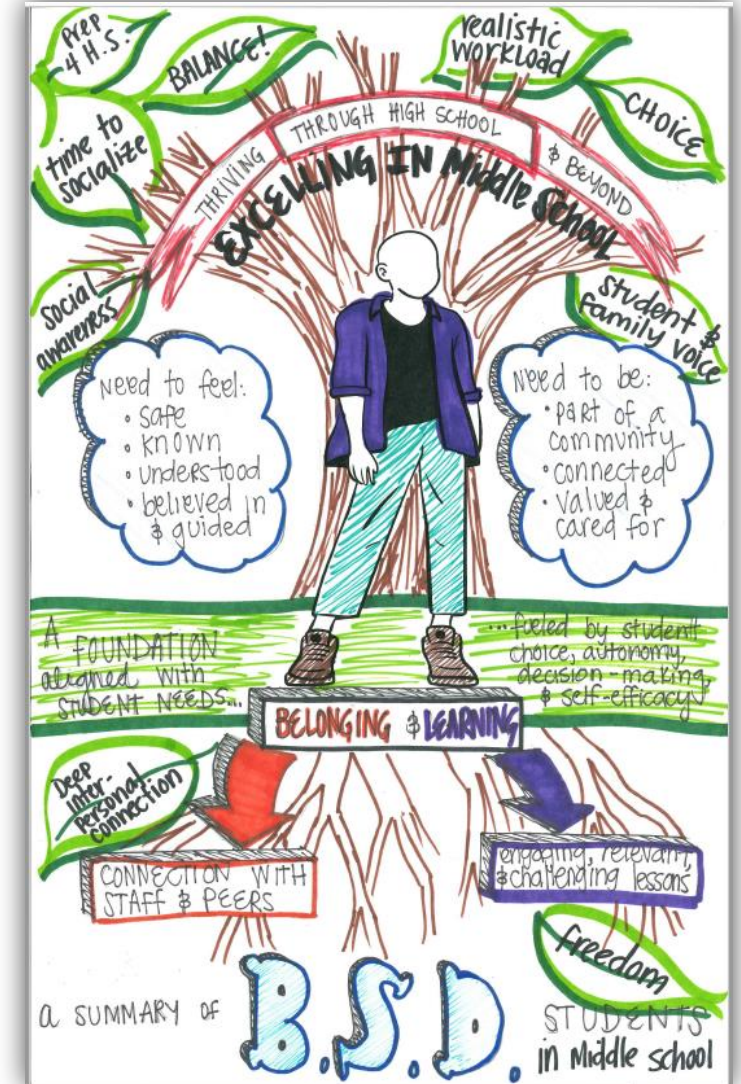 Prep
4 H.S.
BALANCE!
realistic
workload
CHOICE
time to
socialize
THRIVING
THROUGH HIGH SCHOOL
& BEYOND
EXCELLING IN Middle School
social
awareness
student &
Family voice
Need to feel:
• safe
• known
• understood
• believed in
& guided
Need to be:
• part of a
community
• connected
• valued &
cared for
A
FOUNDATION
aligned with
STUDENT NEEDS...
...fueled by student
choice, autonomy,
decision-making,
& self-efficacy
BELONGING & LEARNING
Deep
Inter-
Personal
connection
CONNECTION WITH
STAFF & PEERS
engaging, relevant,
& challenging lessons
freedom
a SUMMARY OF
B.S.D.
STUDENTS
in Middle school